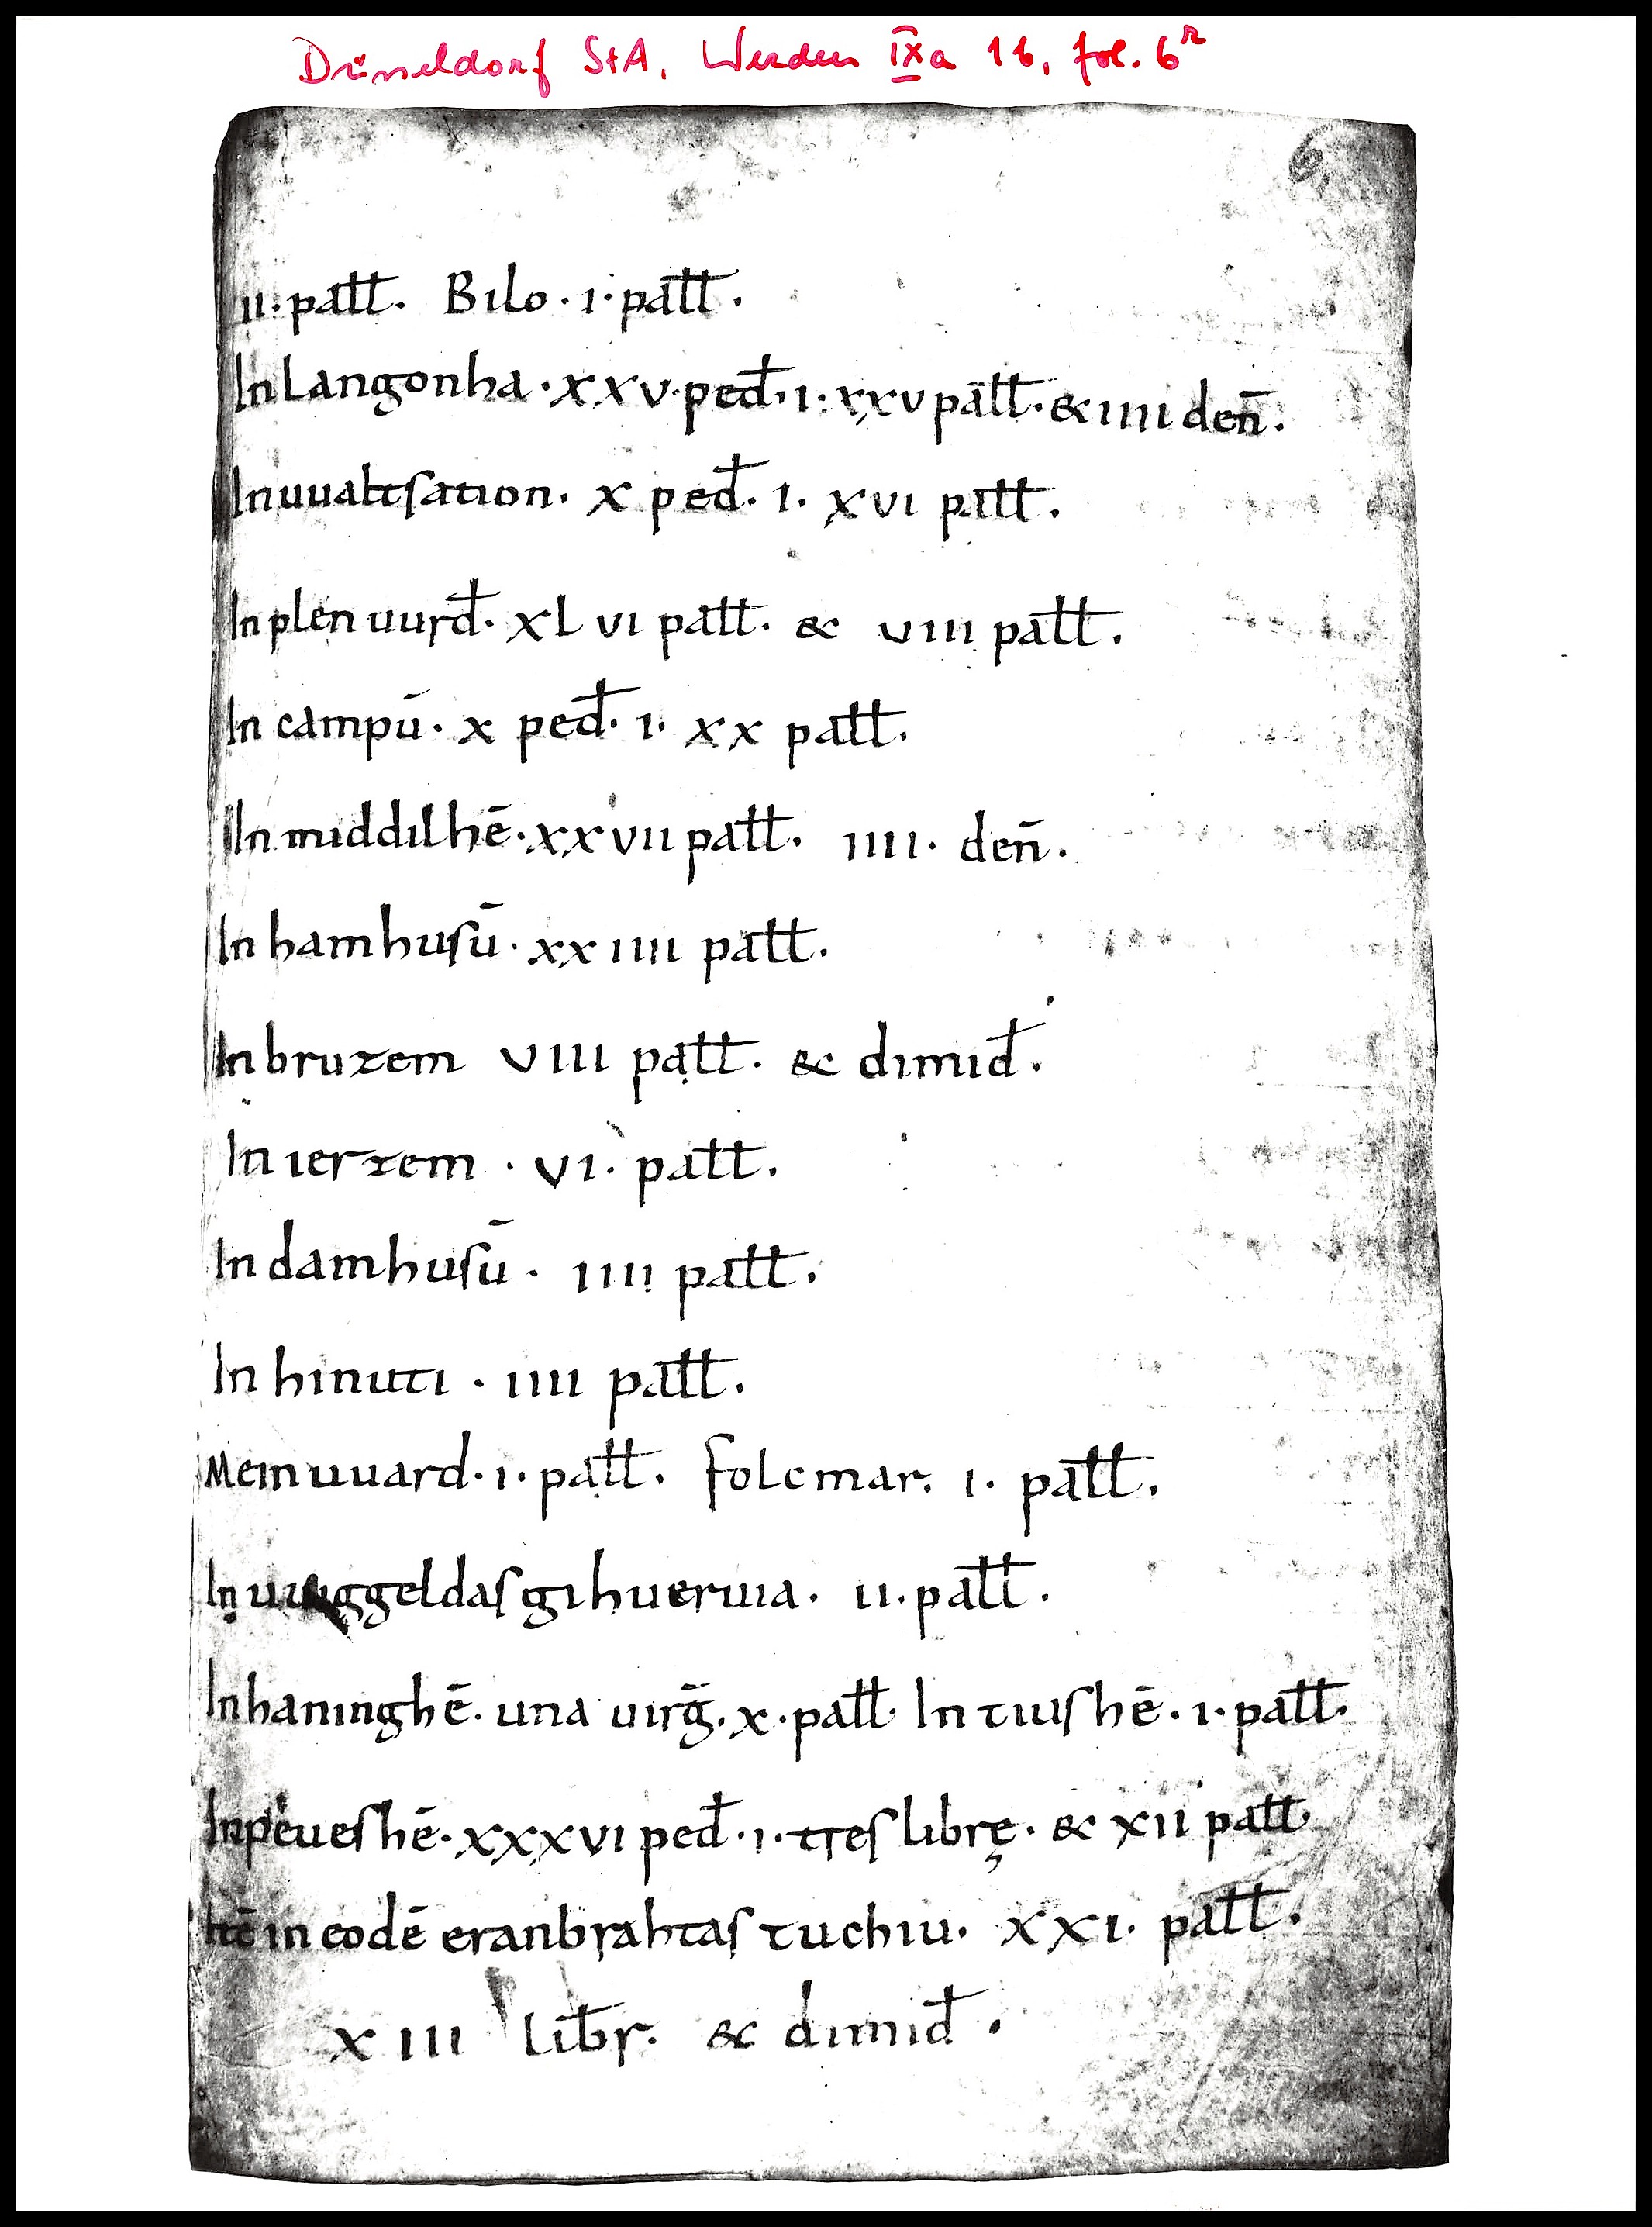 Düsseldorf StA, Werden IXa 1b, fol. 6r
6
ii·pałł. Bilo·i·pałł.
In Langonha·xxv·peđ·i·xxv pałł·& iiii deñ.
In uualtsation. x peđ. i. xvi pałł.
In plen uurđ. xl vi pałł. & viii pałł.
In campū. x peđ. i. xx pałł.
In middilhē·xxvii pałł. iiii· deñ.
In hamhusū. xxiiii pałł.
In bruzem viii pałł. & dimiđ.
In ierzem · vi. pałł.
In damhusū. iiii pałł.
In hinuti. iiii pałł.
Mein uuard·i·pałł. folcmar. i. pałł.
In geldas gihueruia. ii. pałł.
In haninghē. una uirḡ. x·pałł. In tiushē·i·pałł.
In peueshē·xxxvi peđ·i·tres librę. & xii pałł
Itē in eodē eranbrahtas tuchiu. xxi. pałł.
xiii libr. & dimiđ.